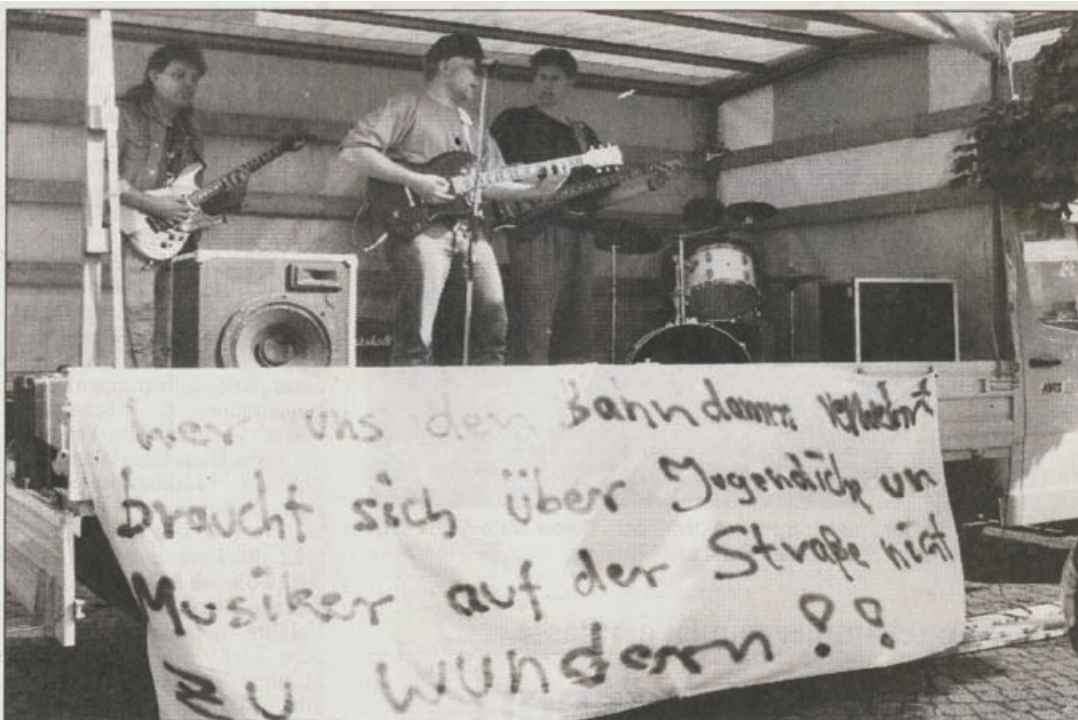 wer uns den Bahndamm verwehrt
braucht sich über Jugendliche un
Musiker auf der Straße nicht
zu wundern!!